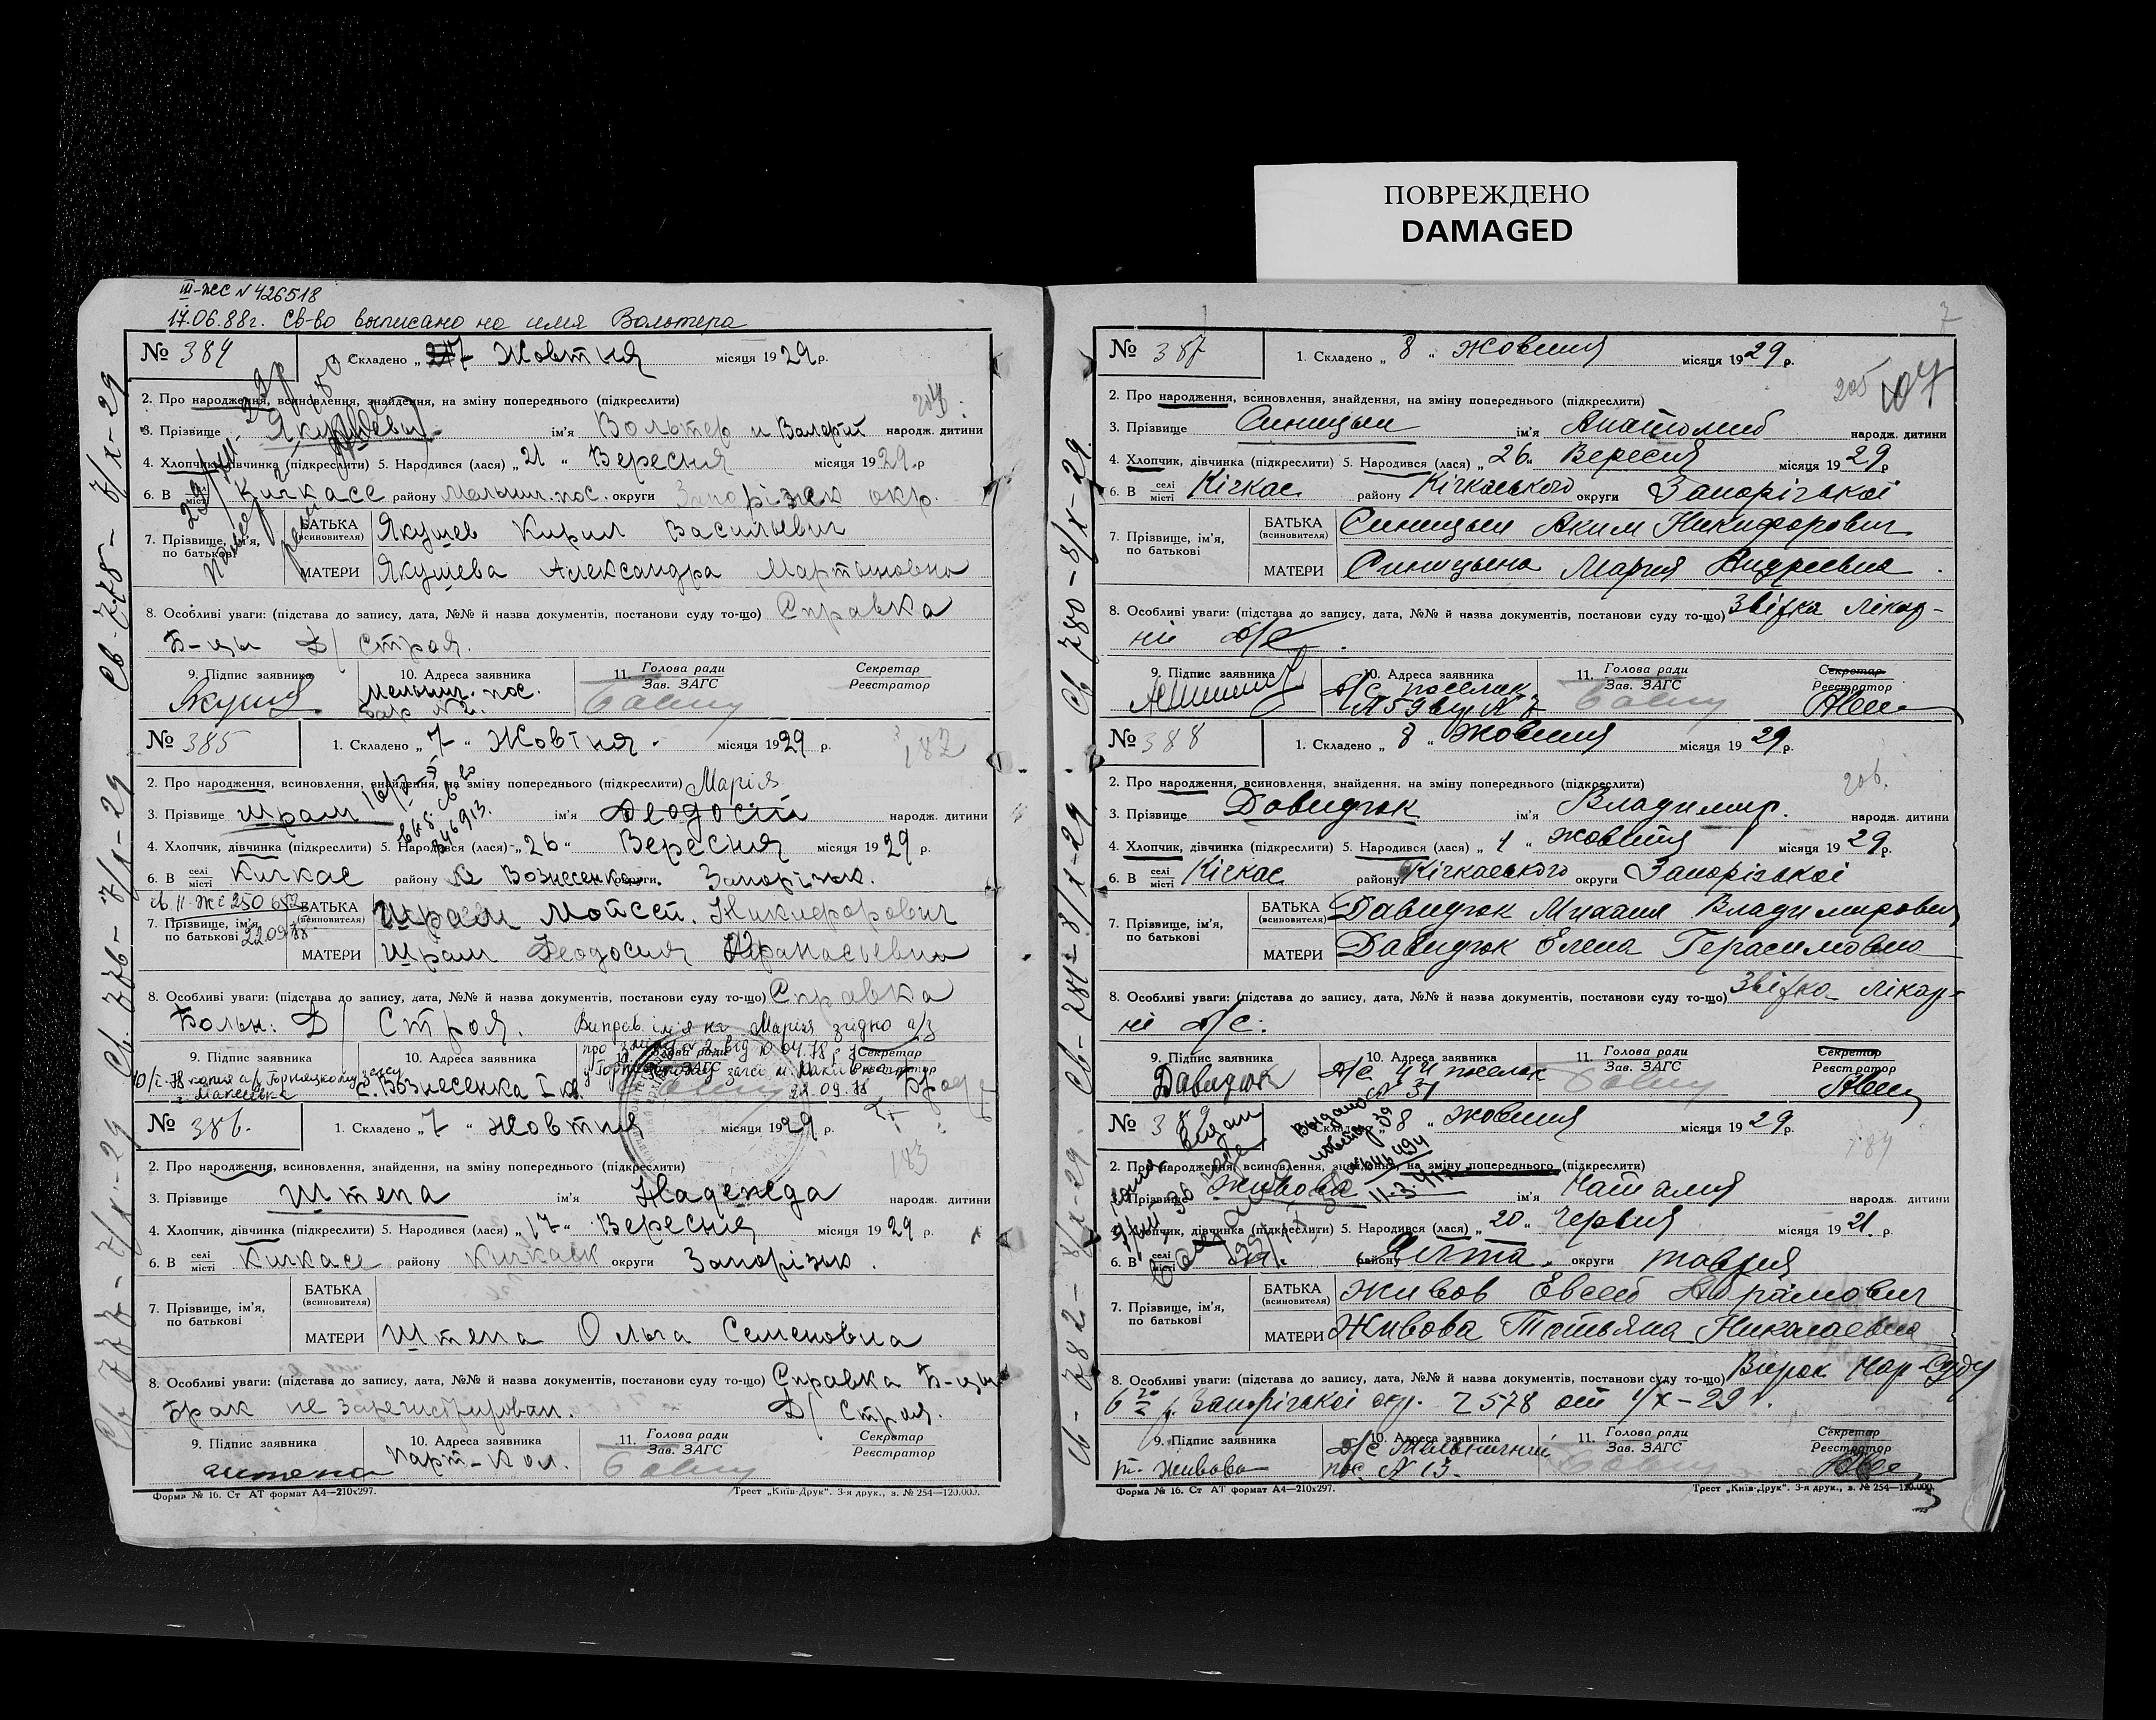 ПОВРЕЖДЕНО
DAMAGED
III-ЖС № 426518
17.06.88г. Св-во выписано на имя Вольтера
№ 384
1. Складено „ 7 Жовтня місяця 1929 р.
2. Про народження, всиновлення, знайдення, на зміну попереднього (підкреслити)
3. Прізвище ім'я Вольтер и Валерий народж. дитини
4. Хлопчик, дівчинка (підкреслити) 5. Народився (лася) „ 21 “ Вересня місяця 1929 р
6. В селі місті Кичкасе району Мельнич. пос. округи Запорізьк окр.
7. Прізвище, ім'я, по батькові
БАТЬКА (всиновителя) Якушев Кирил Васильевич
МАТЕРИ Якушева Александра Мартыновна
8. Особливі уваги: (підстава до запису, дата, №№ й назва документів, постанови суду то-що) Справка
Б-цы Д/ Строя.
9. Підпис заявника 10. Адреса заявника 11. Голова ради Зав. ЗАГС Секретар Реєстратор
Мельнич. пос.
Бар № 2.
№ 385
1. Складено „ 7 “ Жовтня місяця 1929 р.
2. Про народження, всиновлення, знайдення, на зміну попереднього (підкреслити) Марія
3. Прізвище Шрам ім'я Феодосій народж. дитини
4. Хлопчик, дівчинка (підкреслити) 5. Народився (лася) „ 26 “ Вересня місяця 1929 р.
6. В селі місті Кичкас району Вознесенка округи Запорізьк.
св. II-ЖС 250687
22.09.78
7. Прізвище, ім'я, по батькові
БАТЬКА (всиновителя) Шрам Мойсей Никифорович
МАТЕРИ Шрам Феодосия Афанасьевна
8. Особливі уваги: (підстава до запису, дата, №№ й назва документів, постанови суду то-що) Справка
Больн: Д/ Строя. Виправ. ім'я на Марія згідно а/з
про зміну № 2 від 10.04.78 р
9. Підпис заявника 10. Адреса заявника 11. Голова ради Зав. ЗАГС Секретар Реєстратор
с. Вознесенка I
22.09.78
№ 386.
1. Складено „ 7 “ Жовтня місяця 1929 р.
183
2. Про народження, всиновлення, знайдення, на зміну попереднього (підкреслити)
3. Прізвище Штепа ім'я Надежда народж. дитини
4. Хлопчик, дівчинка (підкреслити) 5. Народився (лася) „ 17 “ Вересня місяця 1929 р.
6. В селі місті Кичкасе району Кичкавк округи Запорізьк.
7. Прізвище, ім'я, по батькові
БАТЬКА (всиновителя)
МАТЕРИ Штепа Ольга Семеновна
8. Особливі уваги: (підстава до запису, дата, №№ й назва документів, постанови суду то-що) Справка Б-цы
Брак не зарегистрирован. Д/ Строя.
9. Підпис заявника 10. Адреса заявника 11. Голова ради Зав. ЗАГС Секретар Реєстратор
Парт-Кол.
Форма № 16. Ст АТ формат А4—210х297. Трест „Київ-Друк“. 3-я друк., з. № 254—120.000.
Св. 775 - 7/X-29
Св. 776 - 7/X-29
Св. 777 - 7/X-29
№ 387
1. Складено „ 8 “ Жовтня місяця 1929 р.
205
107
2. Про народження, всиновлення, знайдення, на зміну попереднього (підкреслити)
3. Прізвище Синицын ім'я Анатолий народж. дитини
4. Хлопчик, дівчинка (підкреслити) 5. Народився (лася) „ 26 “ Вересня місяця 1929 р
6. В селі місті Кічкас району Кічкаського округи Запорізької
7. Прізвище, ім'я, по батькові
БАТЬКА (всиновителя) Синицын Аким Никифорович
МАТЕРИ Синицына Мария Андреевна
8. Особливі уваги: (підстава до запису, дата, №№ й назва документів, постанови суду то-що) Звідка лікар-
ні Д/С.
9. Підпис заявника 10. Адреса заявника 11. Голова ради Зав. ЗАГС Секретар Реєстратор
Д/С поселик
№ 388
1. Складено „ 8 “ Жовтня місяця 1929 р.
206.
2. Про народження, всиновлення, знайдення, на зміну попереднього (підкреслити)
3. Прізвище Давидюк ім'я Владимир. народж. дитини
4. Хлопчик, дівчинка (підкреслити) 5. Народився (лася) „ 1 “ Жовтня місяця 1929 р.
6. В селі місті Кічкас району Кічкаського округи Запорізької
7. Прізвище, ім'я, по батькові
БАТЬКА (всиновителя) Давидюк Михаил Владимирович
МАТЕРИ Давидюк Елена Герасимовна
8. Особливі уваги: (підстава до запису, дата, №№ й назва документів, постанови суду то-що) Звідка лікар-
ні Д/С.
9. Підпис заявника 10. Адреса заявника 11. Голова ради Зав. ЗАГС Секретар Реєстратор
Давидюк Д/С 4й поселок
№ 31
№ 389
Складено „ 8 “ Жовтня місяця 1929 р.
2. Про народження, всиновлення, знайдення, на зміну попереднього (підкреслити)
3. Прізвище Живова ім'я Наталия народж. дитини
4. Хлопчик, дівчинка (підкреслити) 5. Народився (лася) „ 20 “ Червня місяця 1921. р.
6. В селі місті району Ялта округи Таврия
7. Прізвище, ім'я, по батькові
БАТЬКА (всиновителя) Живов Евсей Абрамович
МАТЕРИ Живова Татьяна Николаевна
8. Особливі уваги: (підстава до запису, дата, №№ й назва документів, постанови суду то-що) Вирок Нар-Суду
6го р. Запорізької окр. 2578 от 1/X-29 г.
9. Підпис заявника 10. Адреса заявника 11. Голова ради Зав. ЗАГС Секретар Реєстратор
т. Живова Д/С Мельничний
пос. № 13.
Форма № 16. Ст АТ формат А4—210х297. Трест „Київ-Друк“. 3-я друк., з. № 254—120.000.
Св 780 - 8/X-29
Св - 781 - 8/X-29
Св - 782 - 8/X-29